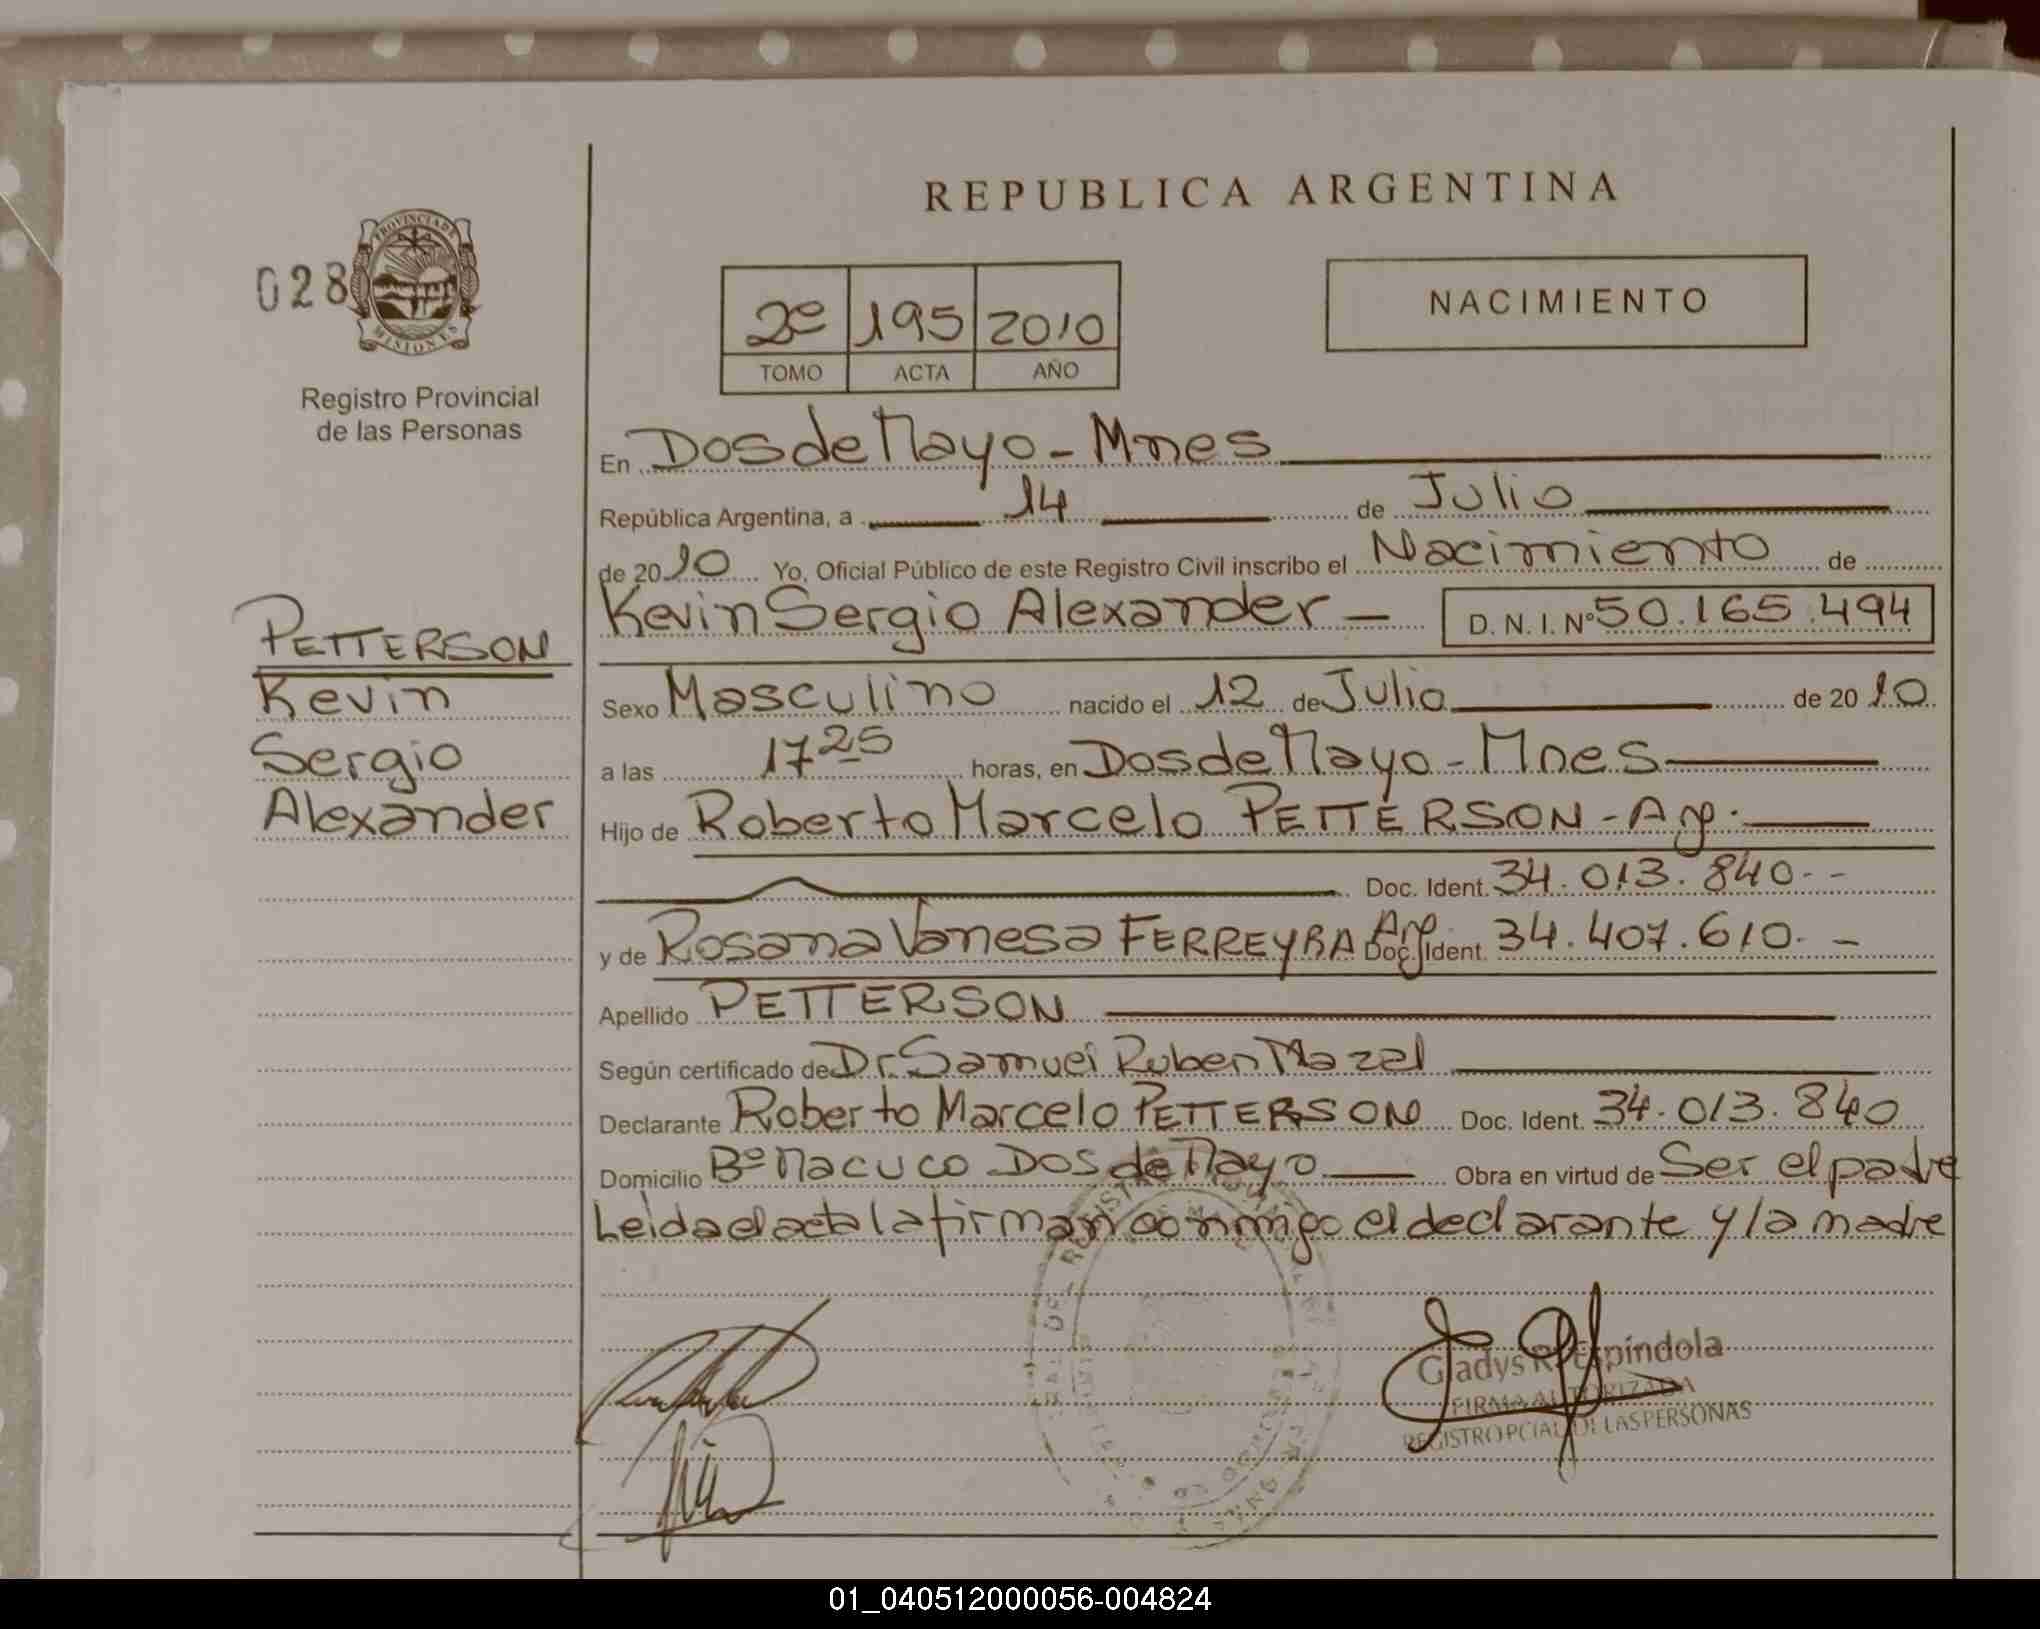 REPUBLICA ARGENTINA
028
PROVINCIA DE
MISIONES
Registro Provincial
de las Personas
2º 195 2010
TOMO ACTA AÑO
NACIMIENTO
En Dos de Mayo - Mnes
República Argentina, a 14 de Julio
de 2010 Yo, Oficial Público de este Registro Civil inscribo el Nacimiento de
Kevin Sergio Alexander — D. N. I. Nº 50.165.494
PETTERSON
Kevin
Sergio
Alexander
Sexo Masculino nacido el 12 de Julio de 2010
a las 17 25 horas, en Dos de Mayo - Mnes
Hijo de Roberto Marcelo PETTERSON - Arg.
Doc. Ident. 34.013.840--
y de Rosana Vanesa FERREYRA Arg Doc. Ident. 34.407.610.-
Apellido PETTERSON
Según certificado de Dr. Samuel Ruben Mazal
Declarante Roberto Marcelo PETTERSON Doc. Ident. 34.013.840
Domicilio Bº Macuco Dos de Mayo Obra en virtud de Ser el padre
Leida el acta la firman conmigo el declarante y la madre
Gladys R. Espíndola
FIRMA AUTORIZADA
REGISTRO PCIAL DE LAS PERSONAS
01_040512000056-004824